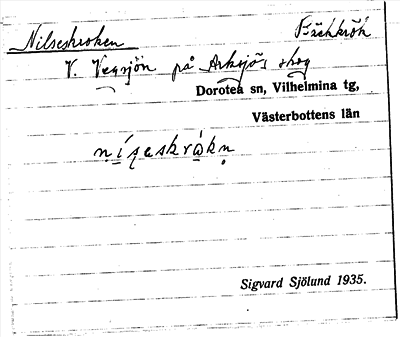 Nilseskroken
V. Vegsjön på Arksjös skog
Dorotea sn, Vilhelmina tg,
Västerbottens län
Sigvard Sjölund 1935.